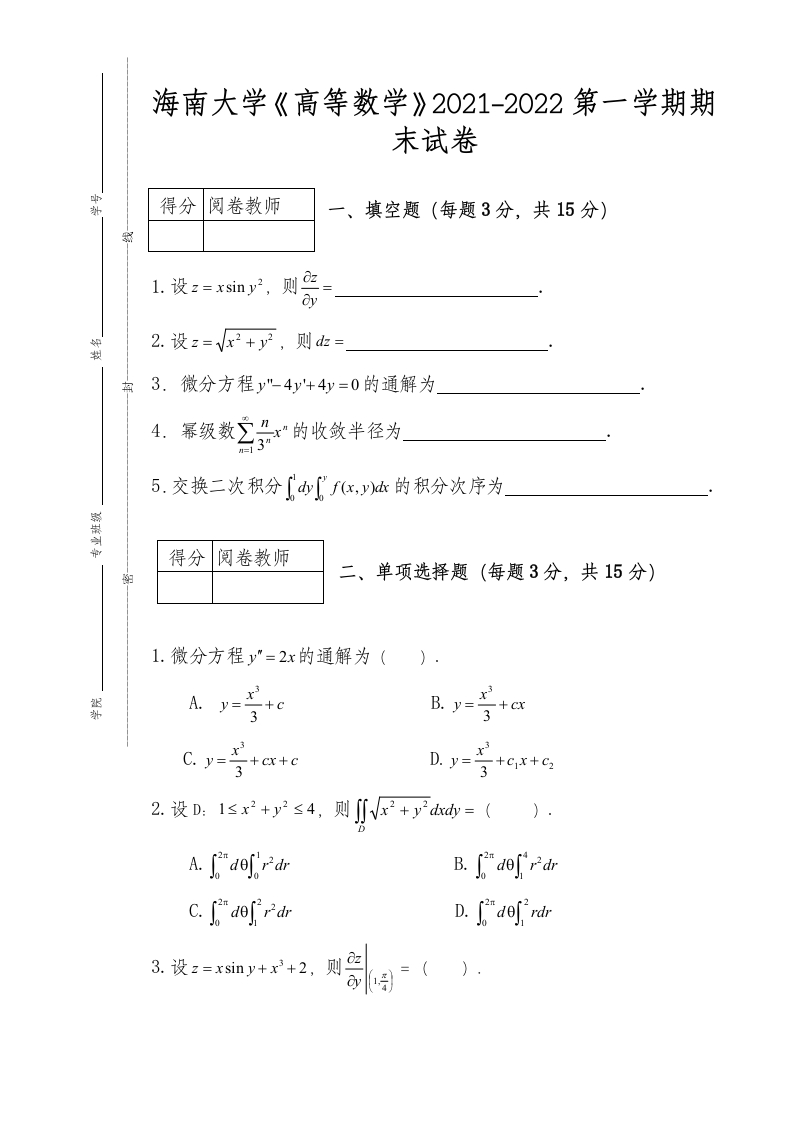 海南大学《高等数学》2021-2022 第一学期期
末试卷
得分 阅卷教师
一、填空题（每题 3 分，共 15 分）
1.设 z = x sin y²，则 ∂z/∂y = ____________________.
2.设 z = √(x² + y²)，则 dz = ____________________.
3. 微分方程 y'' − 4y' + 4y = 0 的通解为____________________.
4. 幂级数 ∑_{n=1}^{∞} (n/3ⁿ) xⁿ 的收敛半径为____________________.
5.交换二次积分 ∫_0^1 dy ∫_0^y f(x, y)dx 的积分次序为____________________.
得分 阅卷教师
二、单项选择题（每题 3 分，共 15 分）
1.微分方程 y″ = 2x 的通解为（　　）.
A. y = x³/3 + c B. y = x³/3 + cx
C. y = x³/3 + cx + c D. y = x³/3 + c₁x + c₂
2.设 D：1 ≤ x² + y² ≤ 4，则 ∬_D √(x² + y²) dxdy =（　　）.
A. ∫_0^{2π} dθ ∫_0^1 r² dr B. ∫_0^{2π} dθ ∫_1^4 r² dr
C. ∫_0^{2π} dθ ∫_1^2 r² dr D. ∫_0^{2π} dθ ∫_1^2 rdr
3.设 z = x sin y + x³ + 2，则 ∂z/∂y |_(1, π/4) =（　　）.
学院
专业班级
姓名
学号
密
封
线